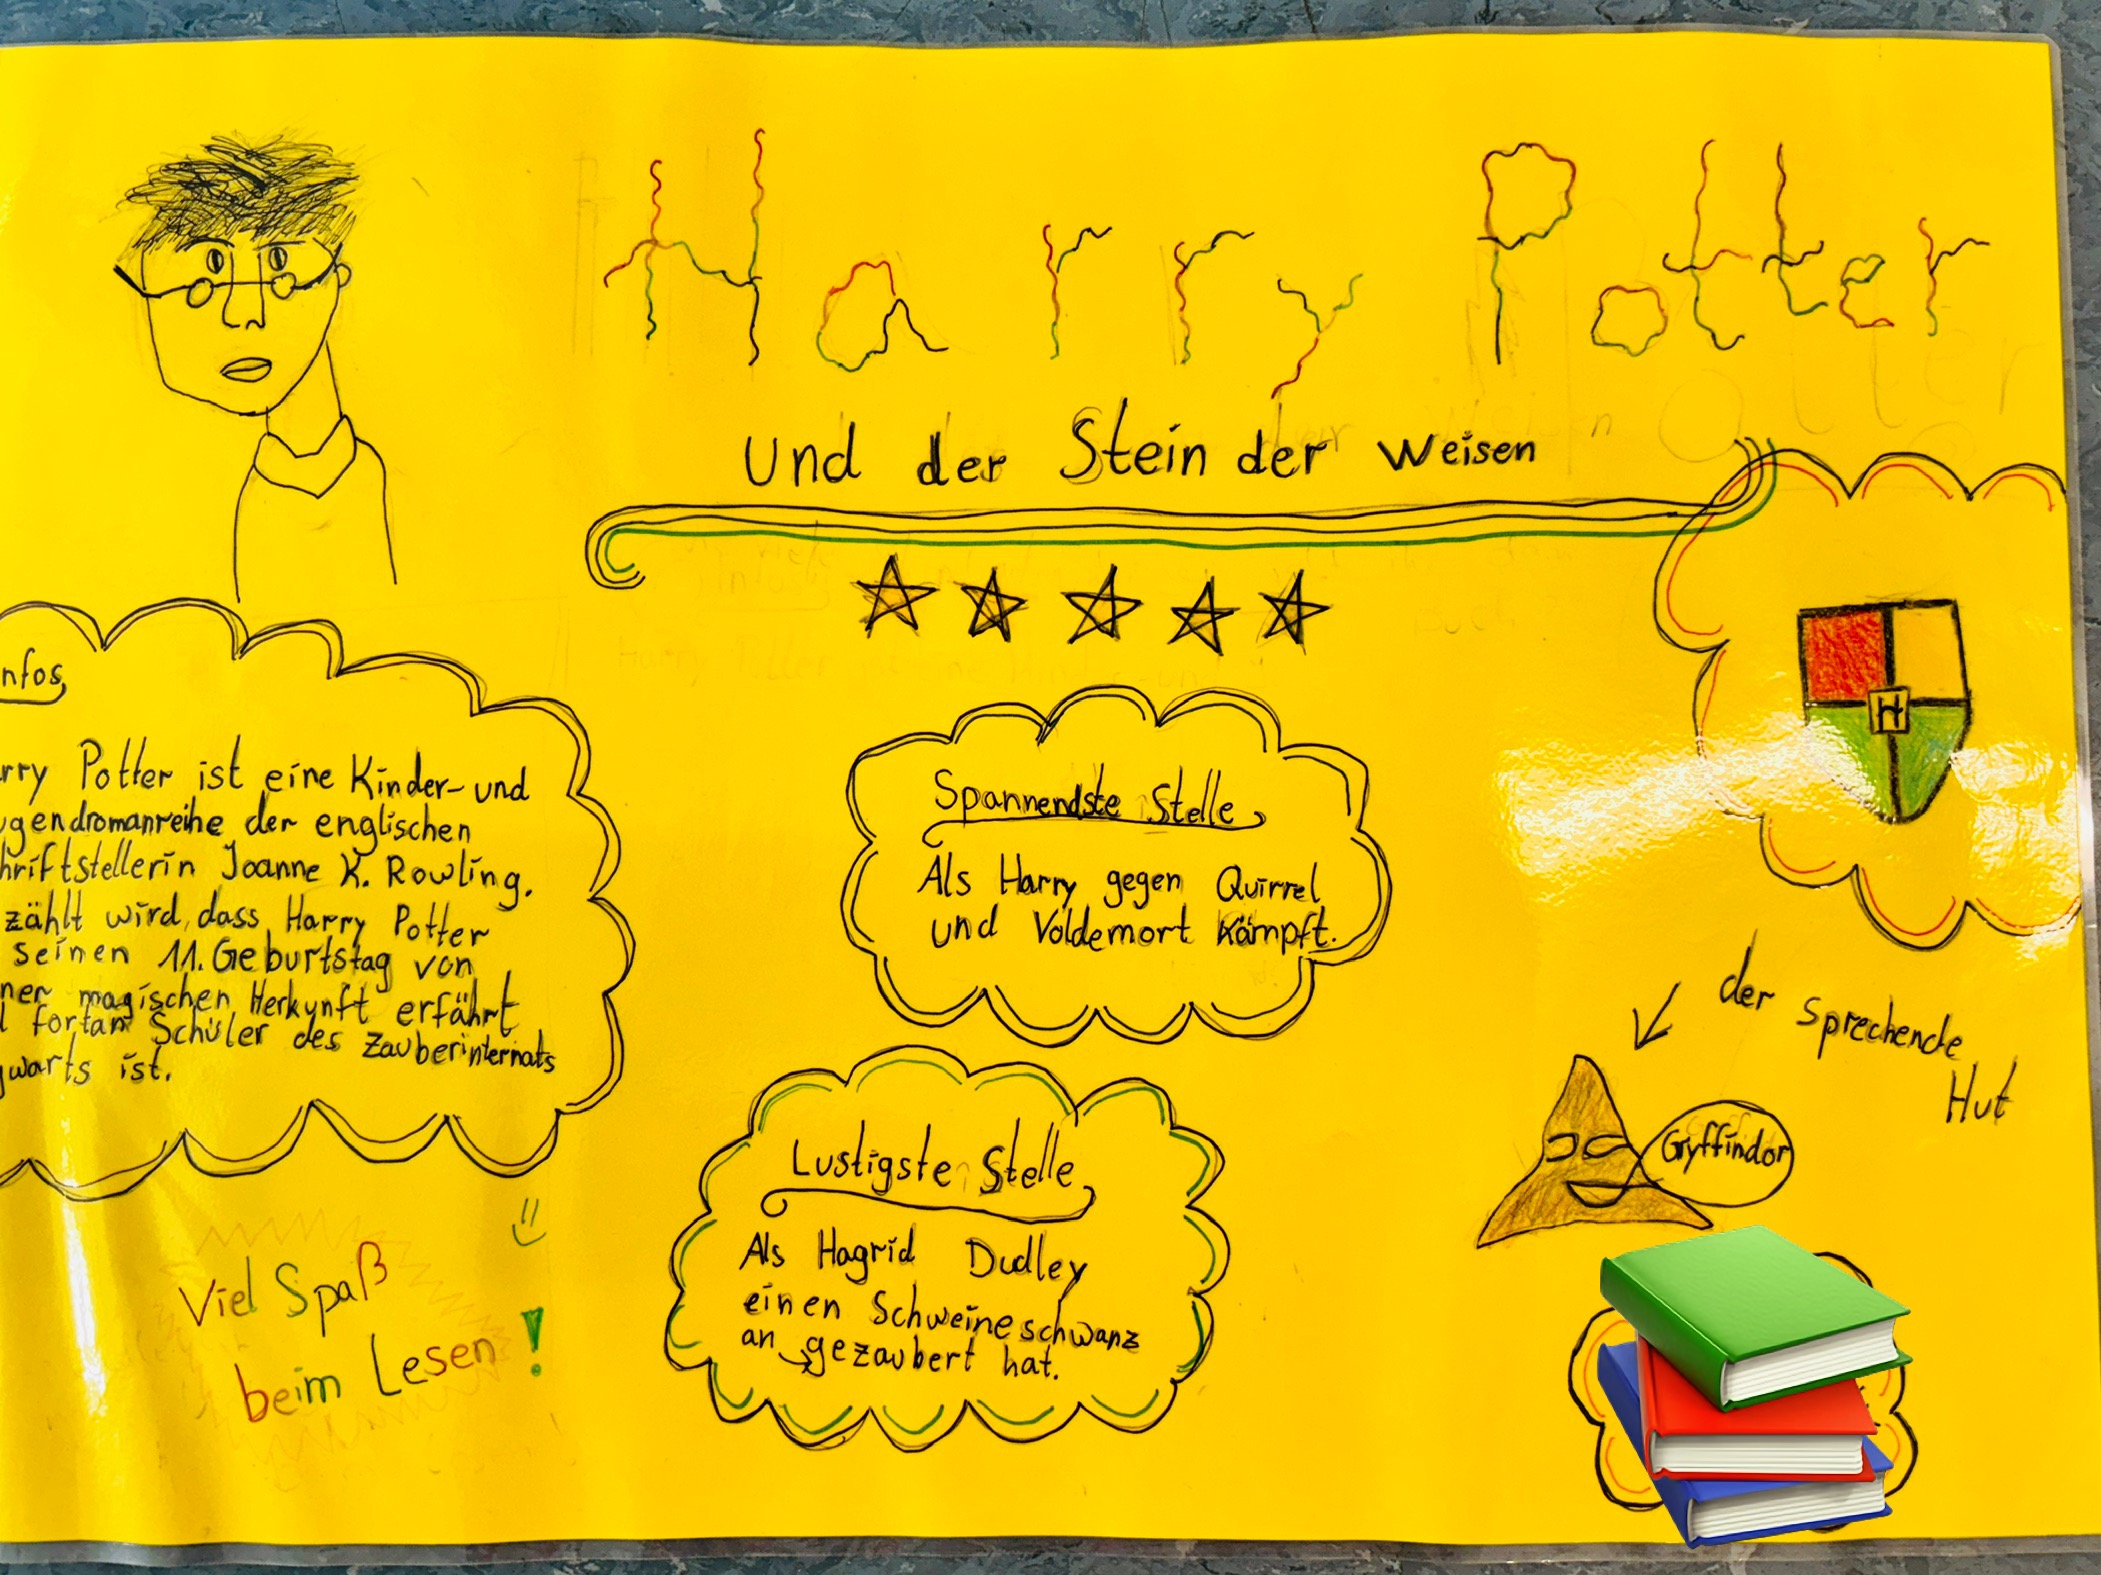 Harry Potter
Und der Stein der Weisen
nfos
rry Potter ist eine Kinder- und
ugendromanreihe der englischen
hriftstellerin Joanne K. Rowling.
zählt wird, dass Harry Potter
seinen 11. Geburtstag von
ner magischen Herkunft erfährt
fortan Schüler des Zauberinternats
gwarts ist.
Viel Spaß
beim Lesen!
Spannendste Stelle
Als Harry gegen Quirrel
und Voldemort kämpft.
Lustigste Stelle
Als Hagrid Dudley
einen Schweineschwanz
an gezaubert hat.
H
der sprechende
Hut
Gryffindor